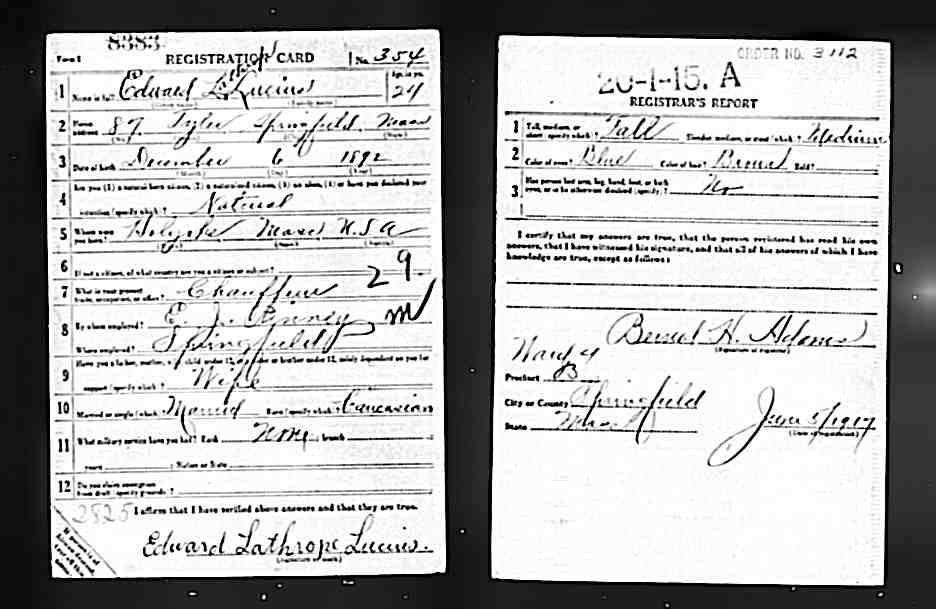 8383
Form 1 REGISTRATION CARD No. 354
1 Name in full Edward L. Lucius Age, in yrs. 24
(Given name) (Family name)
2 Home address 87 Tyler Springfield Mass
(No.) (Street) (City) (State)
3 Date of birth December 6 1892
(Month) (Day) (Year)
4 Are you (1) a natural-born citizen, (2) a naturalized citizen, (3) an alien, (4) or have you declared your
intention (specify which)? Natural
5 Where were you born? Holyoke Mass U.S.A
(Town) (State) (Nation)
6 If not a citizen, of what country are you a citizen or subject?
7 What is your present trade, occupation, or office? Chauffeur 29
8 By whom employed? E. J. Pinney m
Where employed? Springfield
9 Have you a father, mother, wife, child under 12, or a sister or brother under 12, solely dependent on you for
support (specify which)? Wife
10 Married or single (which)? Married Race (specify which)? Caucasian
11 What military service have you had? Rank None ; branch
years ; Nation or State
12 Do you claim exemption from draft (specify grounds)?
2825 I affirm that I have verified above answers and that they are true.
Edward Lathrope Lucius.
(Signature or mark)
ORDER NO. 3112
20-1-15. A
REGISTRAR'S REPORT
1 Tall, medium, or short (specify which)? Tall Slender, medium, or stout (which)? Medium
2 Color of eyes? Blue Color of hair? Brown Bald?
3 Has person lost arm, leg, hand, foot, or both eyes, or is he otherwise disabled (specify)? No
I certify that my answers are true, that the person registered has read his own
answers, that I have witnessed his signature, and that all of his answers of which I have
knowledge are true, except as follows:
H. Adams
(Signature of registrar)
Ward 4
Precinct B
City or County Springfield
State Mass
June 5/1917
(Date of registration)